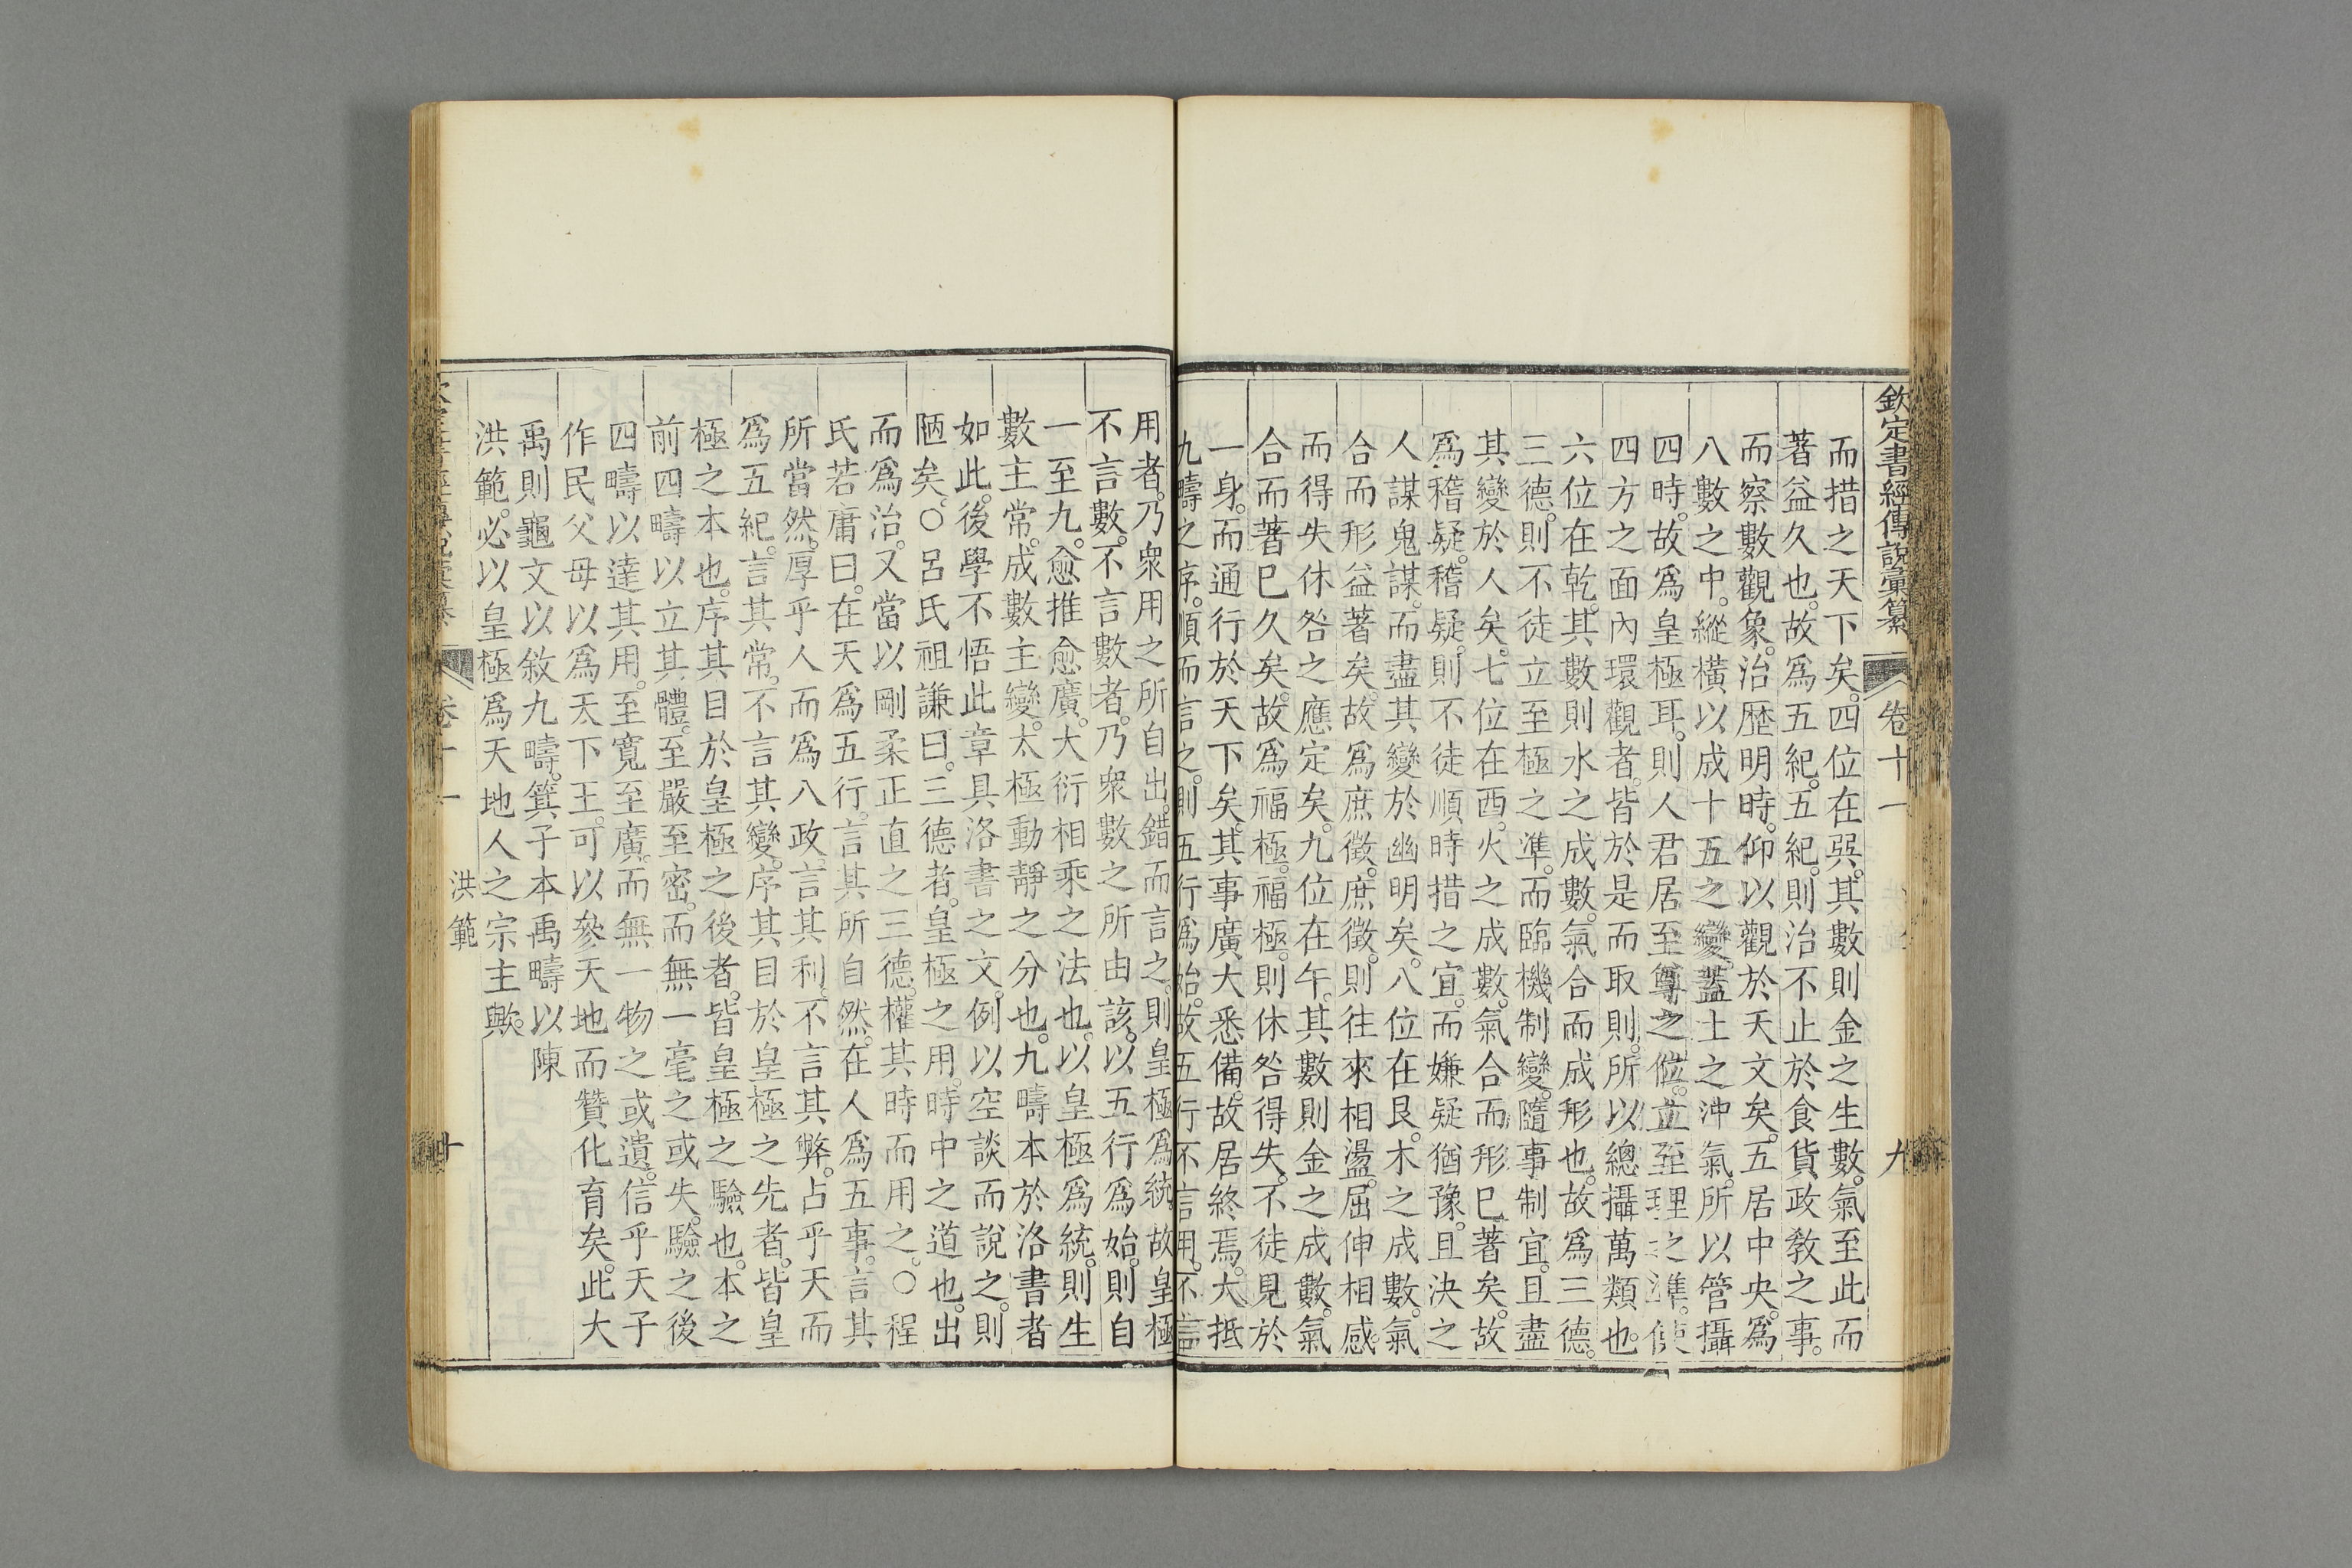 欽定書經傳說彙纂 卷十一 九
而措之天下矣。四位在巽。其數則金之生數。氣至此而
著益久也。故爲五紀。五紀。則治不止於食貨政教之事。
而察數觀象。治歷明時。仰以觀於天文矣。五居中央。爲
八數之中。縱橫以成十五之變。蓋土之沖氣。所以管攝
四時。故爲皇極耳。則人君居至尊之位。立至理之準。使
四方之面內環觀者。皆於是而取則。所以總攝萬類也。
六位在乾。其數則水之成數。氣合而成形也。故爲三德。
三德。則不徒立至極之準。而臨機制變。隨事制宜。且盡
其變於人矣。七位在西。火之成數。氣合而形已著矣。故
爲稽疑。稽疑。則不徒順時措之宜。而嫌疑猶豫。且決之
人謀鬼謀。而盡其變於幽明矣。八位在艮。木之成數。氣
合而形益著矣。故爲庶徵。庶徵。則往來相盪。屈伸相感。
而得失休咎之應定矣。九位在午。其數則金之成數。氣
合而著已久矣。故爲福極。福極。則休咎得失。不徒見於
一身。而通行於天下矣。其事廣大悉備。故居終焉。大抵
九疇之序。順而言之。則五行爲始。故五行不言用。不言
用者。乃衆用之所自出。錯而言之。則皇極爲統。故皇極
不言數。不言數者。乃衆數之所由該。以五行爲始。則自
一至九。愈推愈廣。大衍相乘之法也。以皇極爲統。則生
數主常。成數主變。太極動靜之分也。九疇本於洛書者
如此。後學不悟此章具洛書之文。例以空談而說之。則
陋矣。○呂氏祖謙曰。三德者。皇極之用。時中之道也。出
而爲治。又當以剛柔正直之三德。權其時而用之。○程
氏若庸曰。在天爲五行。言其所自然。在人爲五事。言其
所當然。厚乎人而爲八政。言其利。不言其弊。占乎天而
爲五紀。言其常。不言其變。序其目於皇極之先者。皆皇
極之本也。序其目於皇極之後者。皆皇極之驗也。本之
前四疇以立其體。至嚴至密。而無一毫之或失。驗之後
四疇以達其用。至寬至廣。而無一物之或遺。信乎天子
作民父母以爲天下王。可以參天地而贊化育矣。此大
禹則龜文以敘九疇。箕子本禹疇以陳
洪範。必以皇極爲天地人之宗主歟。
卷十一 洪範 十